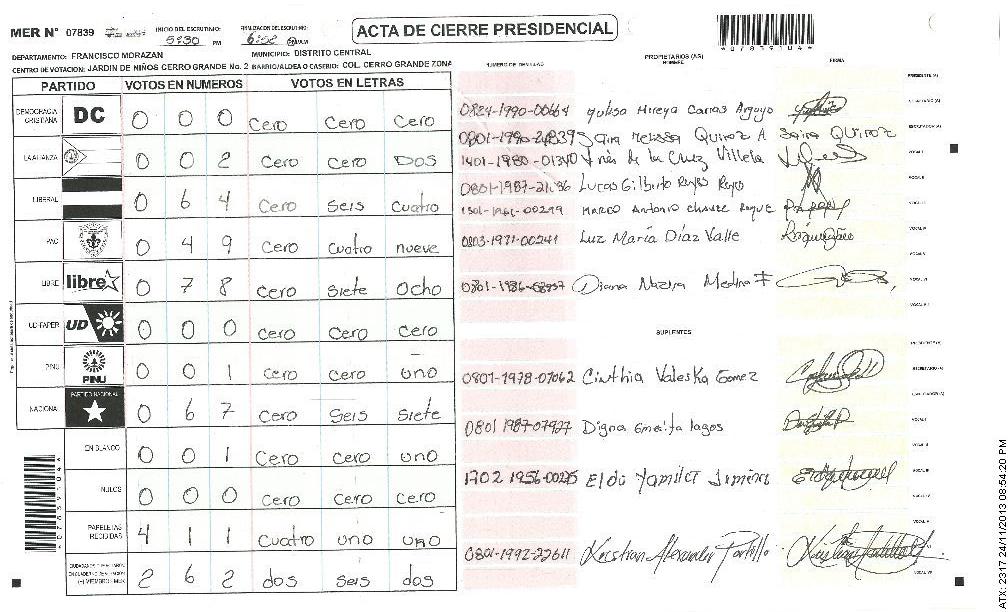 MER N° 07839
INICIO DEL ESCRUTINIO:
5:30 PM
FINALIZACION DEL ESCRUTINIO:
ACTA DE CIERRE PRESIDENCIAL
07819104
DEPARTAMENTO: FRANCISCO MORAZAN
MUNICIPIO: DISTRITO CENTRAL
CENTRO DE VOTACION: JARDIN DE NIÑOS CERRO GRANDE No. 2 BARRIO/ALDEA O CASERIO: COL. CERRO GRANDE ZONA
PARTIDO VOTOS EN NUMEROS VOTOS EN LETRAS
DEMOCRACIA CRISTIANA DC 0 0 0 Cero Cero Cero
LA ALIANZA 0 0 2 Cero Cero DOS
LIBERAL 0 6 4 Cero Seis Cuatro
PAC 0 4 9 Cero Cuatro nueve
LIBRE libre 0 7 8 Cero Siete Ocho
UD-FAPER UD 0 0 0 Cero Cero Cero
PINU PINU 0 0 1 Cero Cero uno
NACIONAL PARTIDO NACIONAL 0 6 7 Cero Seis Siete
EN BLANCO 0 0 1 Cero Cero uno
NULOS 0 0 0 Cero Cero Cero
PAPELETAS RECIBIDAS 4 1 1 Cuatro uno uno
2 6 2 dos seis dos
NUMERO DE IDENTIDAD
PROPIETARIOS (AS)
NOMBRE
FIRMA
0824-1990-00664 Yulisa Mireya Carias Argoyo
Saira Melissa Quiroz A Saira Quiroz
1401-1980-01340 Inés de la Cruz Villela
Lucas Gilberto Reyes Reyes
Marco Antonio Chavez Roque
0803-1971-00241 Luz María Díaz Valle
Diana Nazira Medina F
SUPLENTES
0801-1978-07062 Cinthia Valeska Gomez
0801 1987-07927 Digna Emerita lagos
Elda Yamileth Jimenez
0801-1992-22611 Kristian Alexander Portillo
ATX: 2317 24/11/2013 08:54:20 PM